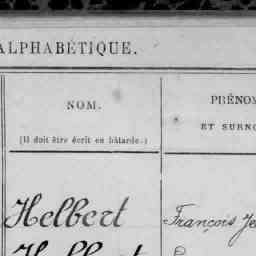 ALPHABÉTIQUE.
NOM.
(Il doit être écrit en bâtarde.)
PRÉNOM
ET SURNO
Helbert
François Je